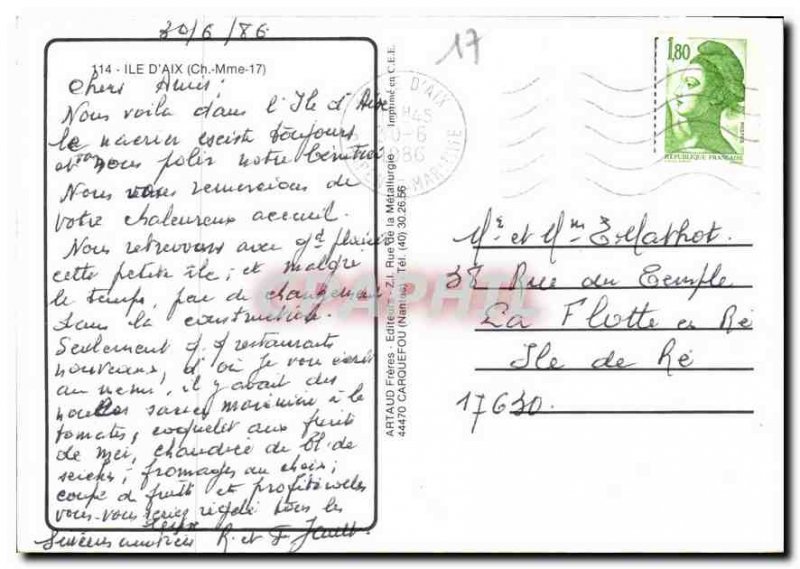 30/6/86
17
114 - ILE D'AIX (Ch.-Mme-17)
Chers Amis:
Nous voila dans l'Ile d'Aix
le existe toujours
nous notre
Nous vous remercions de
votre chaleureux accueil.
Nous retrouvons avec gd plaisir
cette petite île; et malgré
le temps, pas de changement
dans la construction.
Seulement restaurants
nouveaux, d'où je vous écris
au menu, il y avait des
marinière à la
tomates, coquelet aux fruits
de mer, chaudrée de bl. de
seiche, fromages au choix;
coupe d fruits et profiterolles
vous vous seriez régalé tous les
deux
amitiés R. et F. Jault
ARTAUD Frères - Editeurs - Z.I. Rue de la Métallurgie Imprimé en C.E.E.
44470 CARQUEFOU (Nantes) Tél. (40) 30.26.56
D'AIX
H45
30-6
1986
MARITIME
1,80
REPUBLIQUE FRANÇAISE
Mr et Mme E. Mathot.
38 Rue du Temple
La Flotte en Ré
Ile de Ré
17630.
CRAPHIL